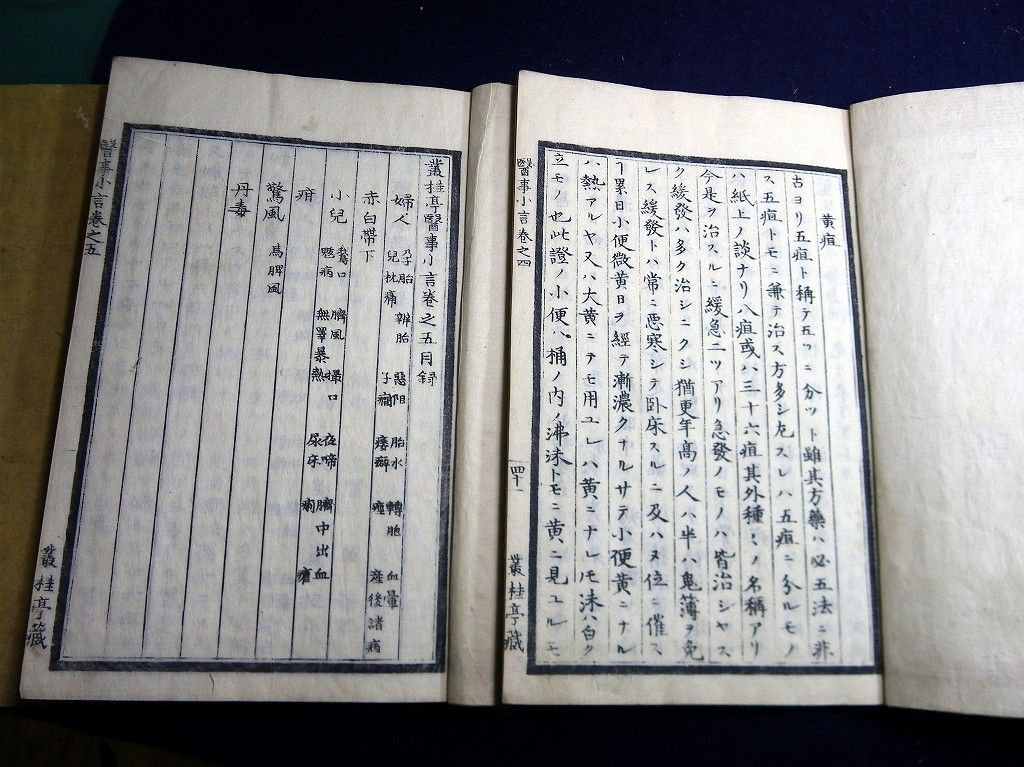 黄疸
古ヨリ五疸ト稱テ五ツニ分ツト雖其方藥ハ必五法ニ非
ス五疸トモニ兼テ治ス方多シ左スレハ五疸ニ分ルモノ
ハ紙上ノ談ナリ八疸或ハ三十六疸其外種〻ノ名稱アリ
今是ヲ治スルニ緩急二ツアリ急發ノモノハ皆治シヤス
ク緩發ハ多ク治シニクシ猶更年高ノ人ハ半ハ鬼薄ヲ免
レス緩發トハ常ニ悪寒シテ卧床スルニ及ハヌ位ニ催ス
累日小便微黄日ヲ經テ漸濃クナルサテ小便黄ニナル
ハ熱アルヤ又ハ大黄ニテモ用ユレハ黄ニナレモ沫ハ白ク
立モノ也此證ノ小便ハ桶ノ内ノ沸沫トモニ黄ニ見ユルモ
醫事小言卷之四
四十一
叢桂亭藏
叢桂亭醫事小言卷之五目録
婦人
孕胎 辨胎 惡阻 胎水 轉胞 血暈
兒枕痛 子癇 痿癖 産後諸病
赤白帶下
小兒
鵞口 臍風 撮口 夜啼 臍中出血
魃病 無辜暴熱 尿床
疳
驚風
馬脾風
丹毒
醫事小言卷之五
叢桂亭藏